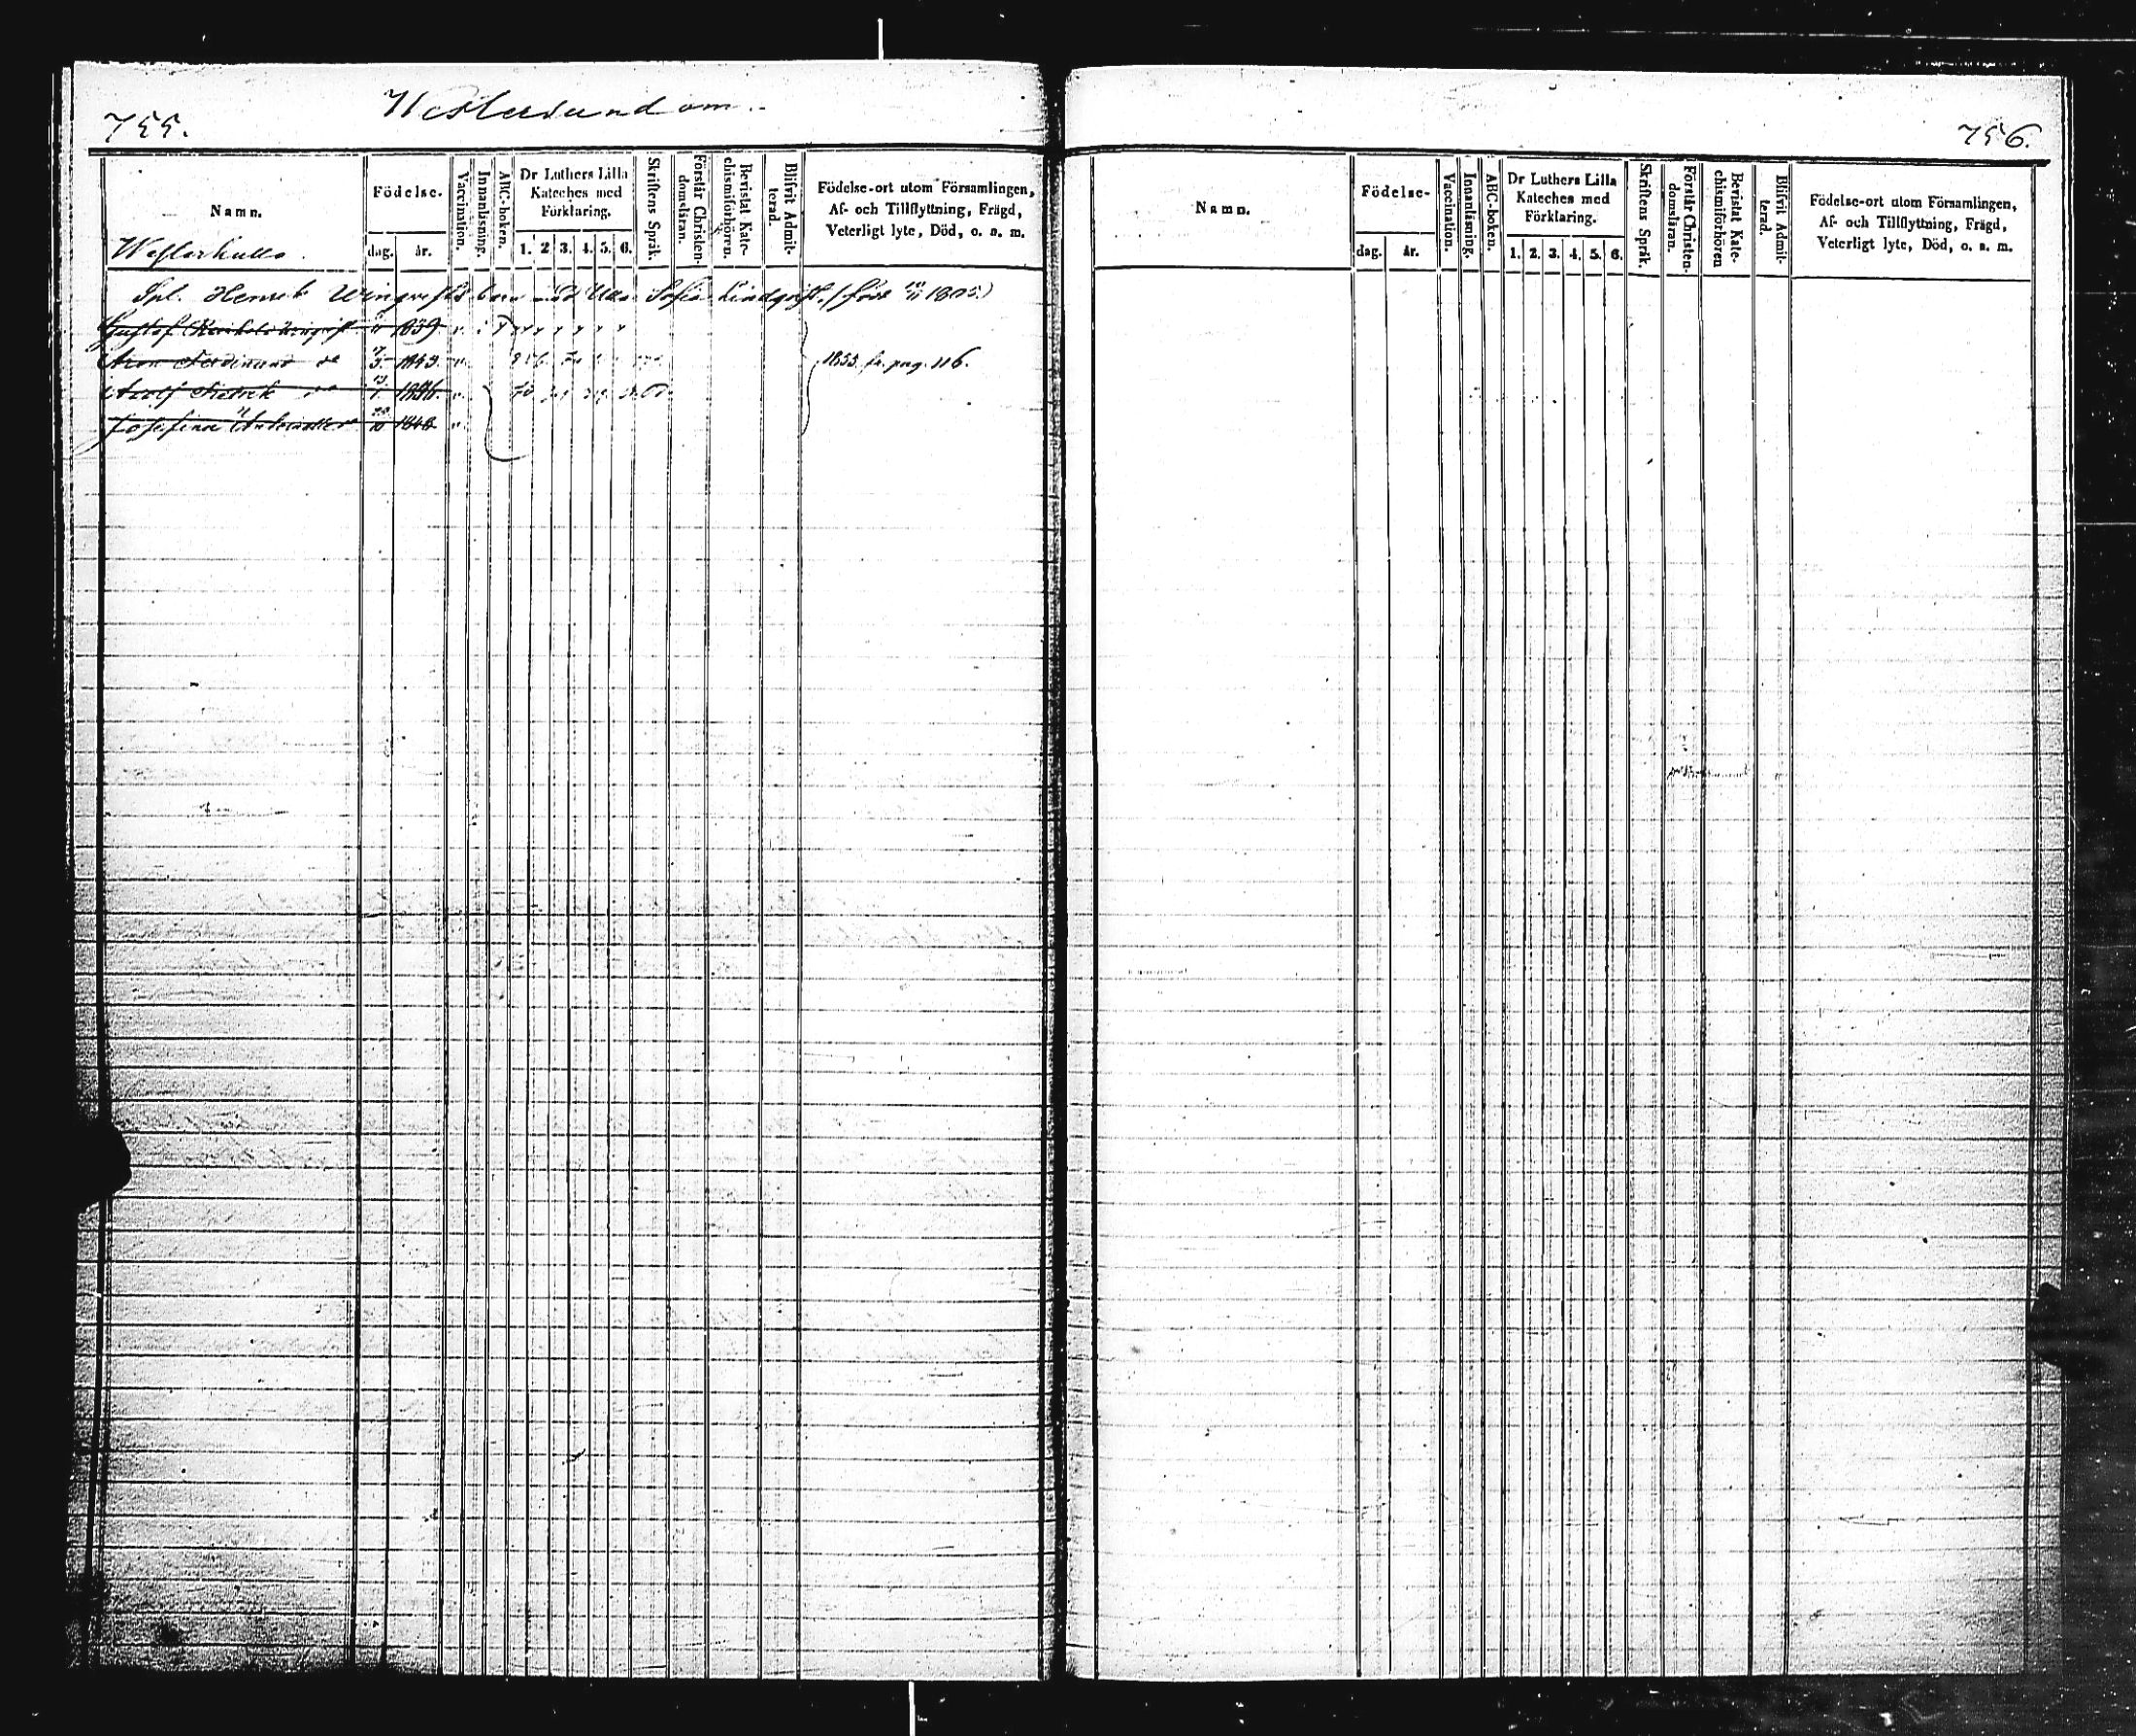 755.
Westersundom.
Namn.
Westerkulla.
Födelse-
dag.
år.
Vaccination.
Innanläsning.
ABC-boken.
Dr Luthers Lilla
Kateches med
Förklaring.
1. 2 3. 4. 5. 6.
Skriftens Språk.
Förstår Christen-
domsläran.
Bevistat Kate-
chismiförhören.
Blifvit Admit-
terad.
Födelse-ort utom Församlingen,
Af- och Tillflyttning, Frägd,
Veterligt lyte, Död, o. s. m.
Spl. Henrik Wingqvists barn med Ulla Sofia Lindqvist. (född 1805.)
Gustof 1839
Aron Ferdinand 1843. 1855. fr. pag. 116.
Adolf Fredrik
Josefina 1848
756.
Namn.
Födelse-
dag.
år.
Vaccination.
Innanläsning.
ABC-boken.
Dr Luthers Lilla
Kateches med
Förklaring.
1. 2. 3. 4. 5. 6.
Skriftens Språk.
Förstår Christen-
domsläran.
Bevistat Kate-
chismiförhören
Blifvit Admit-
terad.
Födelse-ort utom Församlingen,
Af- och Tillflyttning, Frägd,
Veterligt lyte, Död, o. s. m.